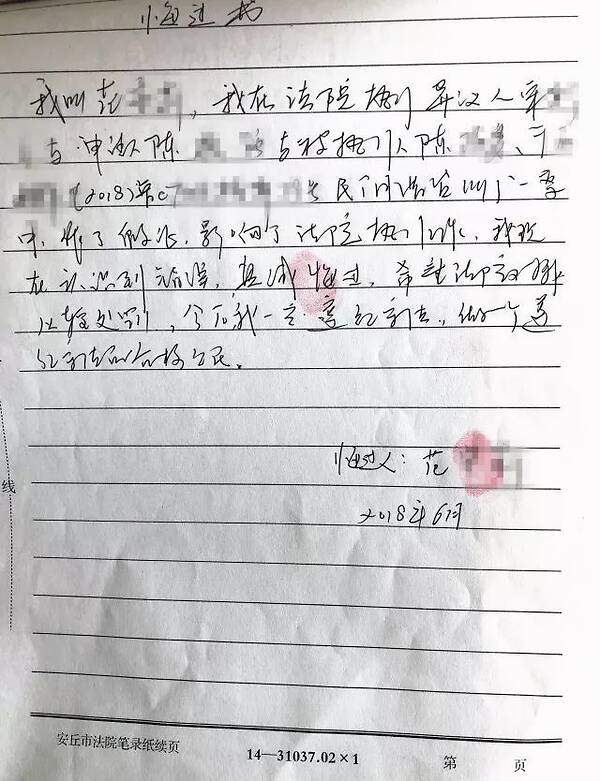 悔过书
我叫范，我在法院执行异议人宋
与申请人陈与被执行人陈、于
(2018)鲁07民间借贷纠纷一案
中，作了伪证，影响了法院执行工作，我现
在认识到错误，真诚悔过，希望法院能够
从轻处罚，今后我一定遵纪守法，做一个遵
纪守法的合格公民。
悔过人：范
2018年6月
线
安丘市法院笔录纸续页
14—31037.02×1
第 页